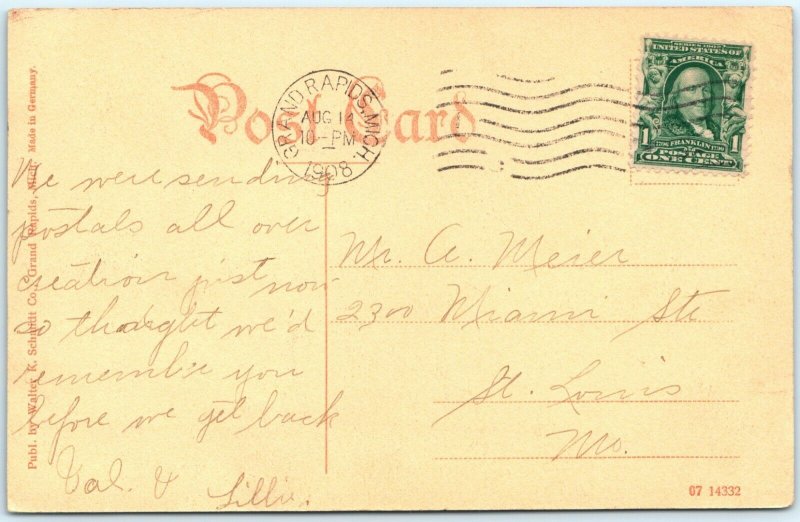 Post Card
GRAND RAPIDS, MICH.
AUG 14
10-PM
1908
SERIES 1902
UNITED STATES OF
AMERICA
1 FRANKLIN 1
POSTAGE
ONE CENT
We were sending
postals all over
creation just now
so thought we'd
remember you
before we get back
Val. & Lillie.
Mr. A. Meier
2300 Miami Ste
St. Louis
Mo.
Publ. by Walter K. Schmidt Co., Grand Rapids, Mich. Made in Germany.
07 14332